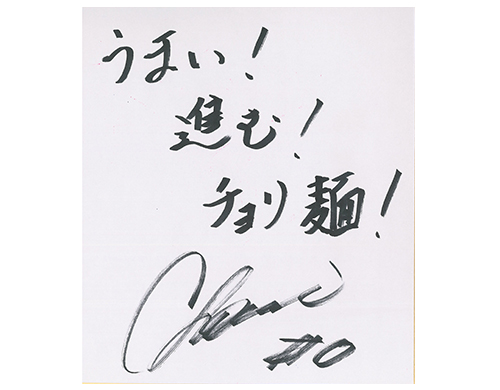 うまい!
進む!
チョリ麺!
#0